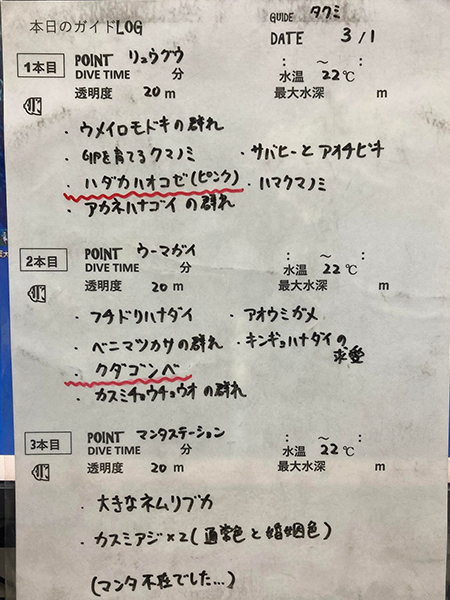 本日のガイドLOG
GUIDE タクミ
DATE 3/1
1本目 POINT リュウグウ : ～ :
DIVE TIME 分 水温 22℃
透明度 20m 最大水深 m
・ウメイロモドキの群れ
・卵を育てるクマノミ ・サバヒーとアオチビキ
・ハダカハオコゼ(ピンク) ・ハマクマノミ
・アカネハナゴイの群れ
2本目 POINT ウーマガイ : ～ :
DIVE TIME 分 水温 22℃
透明度 20m 最大水深 m
・フチドリハナダイ ・アオウミガメ
・ベニマツカサの群れ ・キンギョハナダイの
求愛
・クダゴンベ
・カスミチョウチョウオの群れ
3本目 POINT マンタステーション : ～ :
DIVE TIME 分 水温 22℃
透明度 20m 最大水深 m
・大きなネムリブカ
・カスミアジ×2(通常色と婚姻色)
(マンタ不在でした...)